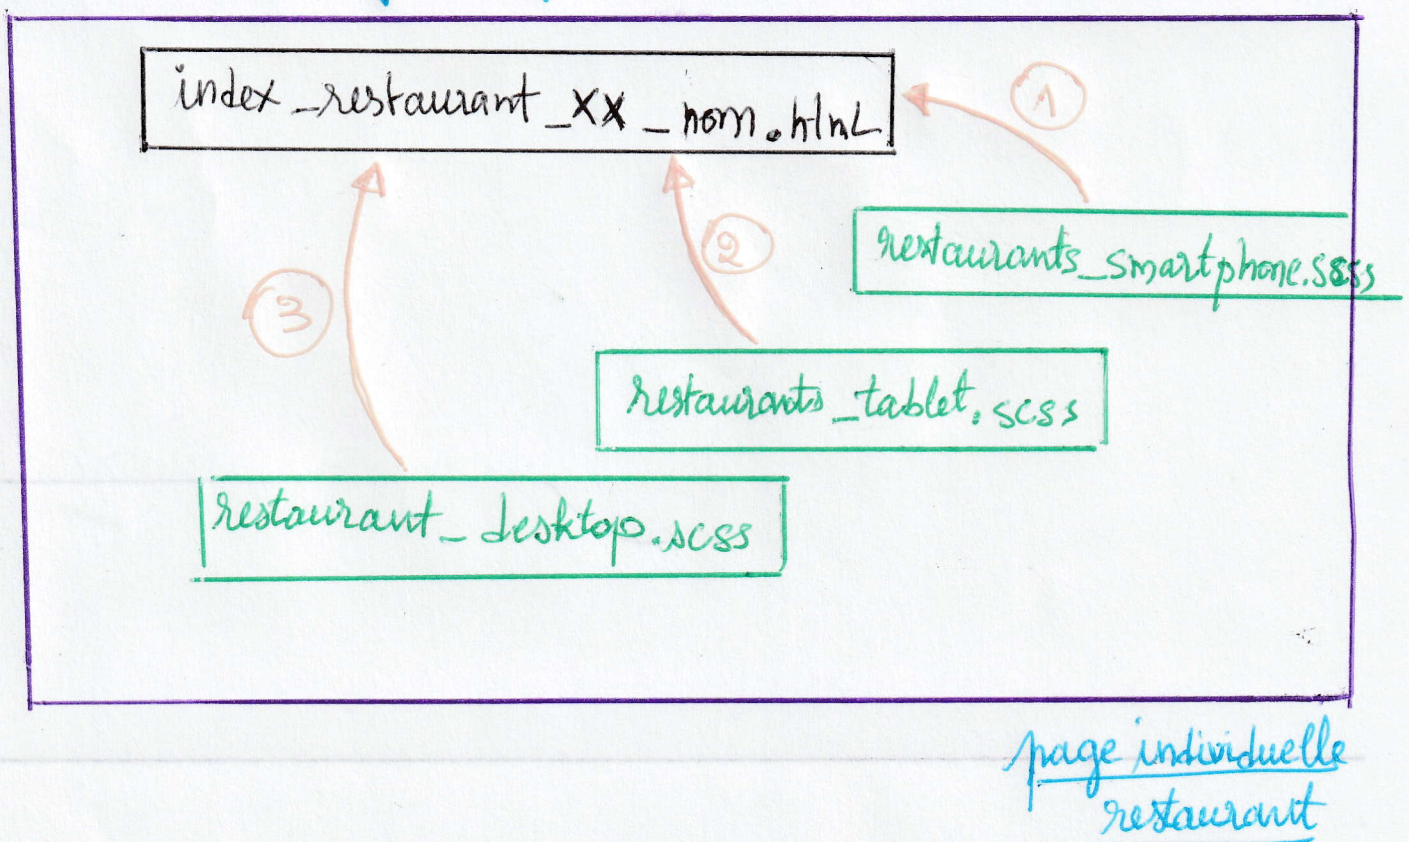 index_restaurant_XX_nom.html
1
restaurants_smartphone.scss
2
3
restaurants_tablet.scss
restaurant_desktop.scss
page individuelle
restaurant